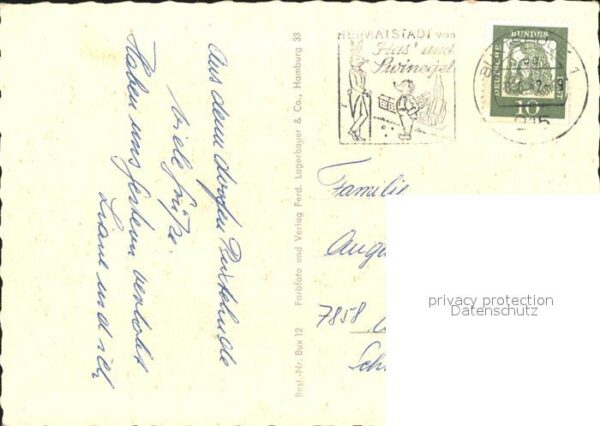 Aus dem Dorfe Buxtehude
viele Grüße.
Haben uns gestern verlobt
Liane und ich
Best.-Nr. Bux 12 Farbfoto und Verlag Ferd. Lagerbauer & Co., Hamburg 33
HEIMATSTADT von
Has' und
Swinegel
DEUTSCHE BUNDES
10
1
215
Familie
Augu
7858
Sch
privacy protection
Datenschutz